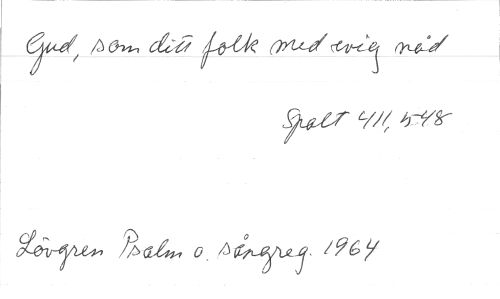 Gud, som ditt folk med evig nåd
Spalt 411, 548
Lövgren Psalm o. sångreg. 1964